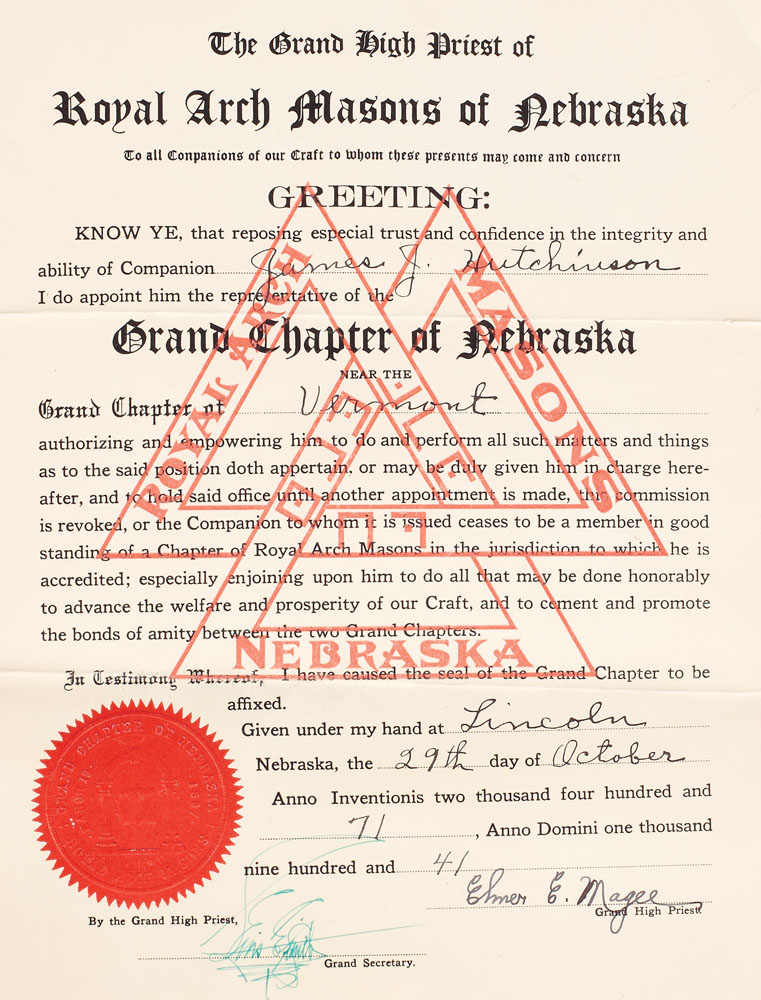 The Grand High Priest of
Royal Arch Masons of Nebraska
To all Conpanions of our Craft to whom these presents may come and concern
GREETING:
KNOW YE, that reposing especial trust and confidence in the integrity and
ability of Companion James J. Hutchinson
I do appoint him the representative of the
Grand Chapter of Nebraska
NEAR THE
Grand Chapter of Vermont
authorizing and empowering him to do and perform all such matters and things
as to the said position doth appertain, or may be duly given him in charge here-
after, and to hold said office until another appointment is made, this commission
is revoked, or the Companion to whom it is issued ceases to be a member in good
standing of a Chapter of Royal Arch Masons in the jurisdiction to which he is
accredited; especially enjoining upon him to do all that may be done honorably
to advance the welfare and prosperity of our Craft, and to cement and promote
the bonds of amity between the two Grand Chapters.
ROYAL ARCH
MASONS
NEBRASKA
In Testimony Whereof, I have caused the seal of the Grand Chapter to be
affixed.
Given under my hand at Lincoln
Nebraska, the 29th day of October
Anno Inventionis two thousand four hundred and
71, Anno Domini one thousand
nine hundred and 41
Elmer E. Magee
Grand High Priest.
By the Grand High Priest,
Grand Secretary.
GRAND CHAPTER OF NEBRASKA